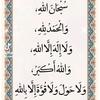 سُبْحَانَ اللّٰهِ،
وَالْحَمْدُ لِلّٰهِ،
وَلَا إِلٰهَ إِلَّا اللّٰهُ،
وَاللّٰهُ أَكْبَرُ،
وَلَا حَوْلَ وَلَا قُوَّةَ إِلَّا بِاللّٰهِ